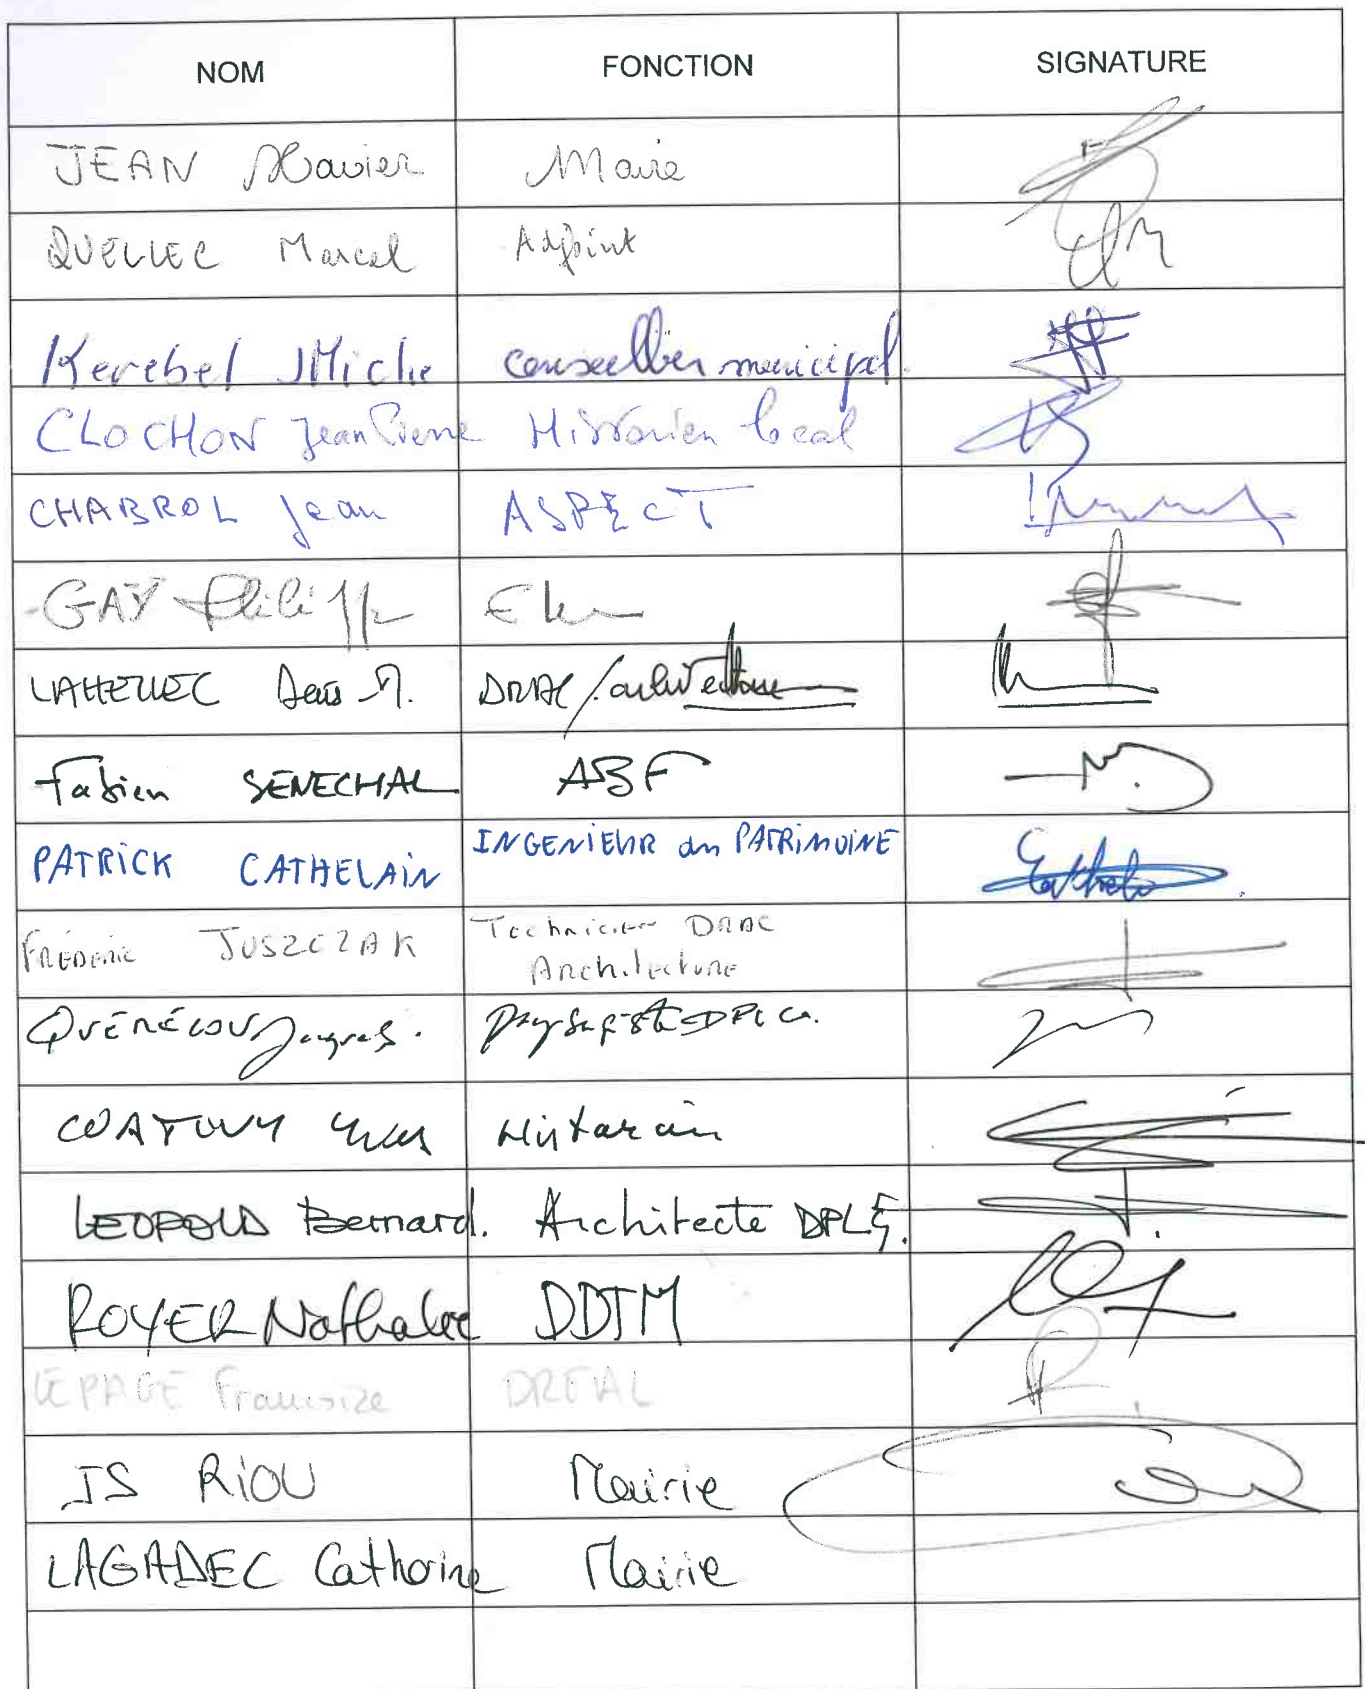 NOM FONCTION SIGNATURE
JEAN Xavier Maire
QUELLEC Marcel Adjoint
Kerebel JMiche conseiller municipal.
CLOCHON Jean Pierre Historien local
CHABROL Jean ASPECT
GAY Philippe Elu
LAHELLEC Denis M. DRAC / architecture
Fabien SENECHAL ABF
PATRICK CATHELAIN INGENIEUR du PATRIMOINE
FREDERIC JUSZCZAK Technicien DRAC
Architecture
QUÉNÉCOU Jacques. paysagiste DPLG.
COATIVY Yves Historien
LEOPOLD Bernard. Architecte DPLG.
ROYER Nathalie DDTM
LEPAGE Françoize DREAL
JS RIOU Mairie
LAGADEC Catherine Mairie